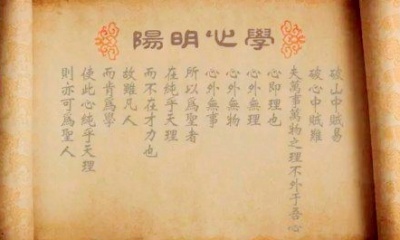 陽明心學
破山中賊易
破心中賊難
夫萬事萬物之理不外于吾心
心即理也
心外無理
心外無物
心外無事
所以爲聖者
在純乎天理
而不在才力也
故雖凡人
而肯爲學
使此心純乎天理
則亦可爲聖人